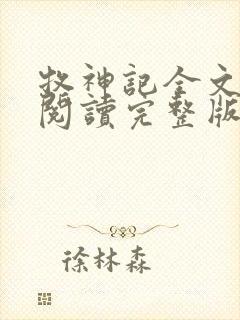 牧神記全文
閱讀完整版
徐林森